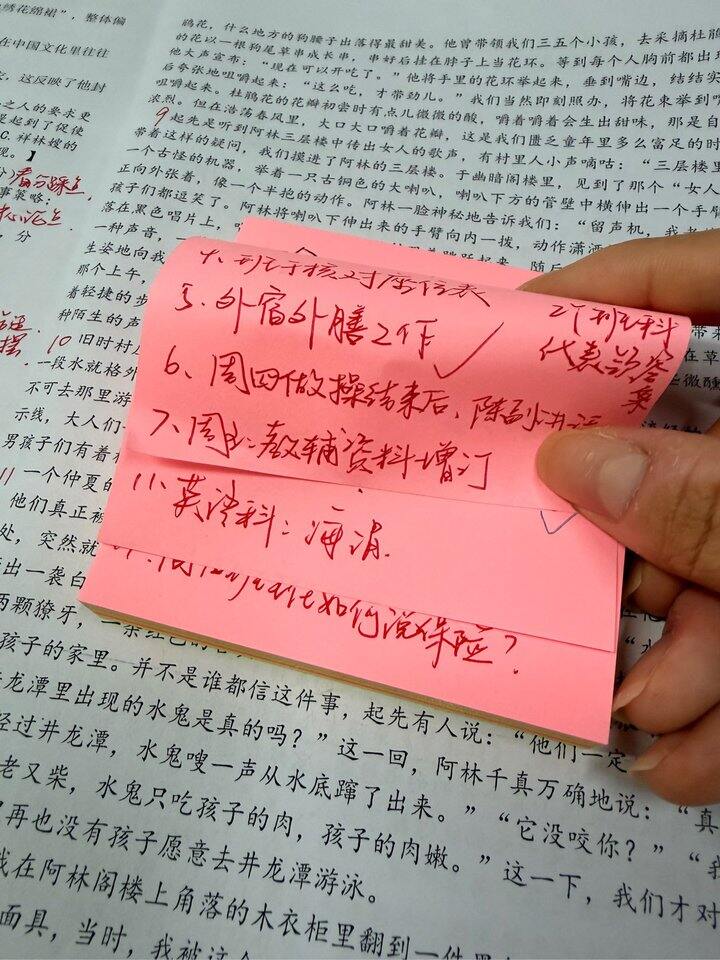 绣花绵裙”，整体偏
在中国文化里往往
这反映了他封
之人的要求更
是起到了促使
C. 祥林嫂的
现。】
事策略：
分
鹃花，什么地方的狗腰子出落得最甜美。他曾带领我们三五个小孩，去采摘杜鹃
的花以一根狗尾草串成长串，串好后挂在脖子上当花环。等到每个人胸前都出现
他大声宣布：“现在可以开吃了。”他将手里的花环举起来，垂到嘴边，结结实
后夸张地咀嚼起来：“这么吃，才带劲儿。”我们当然即刻照办，将花束举到嘴
咀嚼起来。杜鹃花的花瓣初尝时有点儿微微的酸，嚼着嚼着会生出甜味，那是自
浓烈。但在浩荡春风里，大口大口嚼着花瓣，这是我们匮乏童年里多么富足的时
9 起先是听到阿林三层楼中传出女人的歌声，有村里人小声嘀咕：“三层楼里
带着这样的疑问，我们摸进了阿林的三层楼。于幽暗阁楼里，见到了那个“女人
一个古怪的机器，举着一只古铜色的大喇叭，喇叭下方的管壁中横伸出一个手臂
正向外张着，像一个半抱的动作。阿林一脸神秘地告诉我们：“留声机，我
孩子们都逗笑了。阿林将喇叭下伸出来的手臂向内一拨，动作潇洒
落在黑色唱片上，
一种声音，一
生姿地向我
那个上午，
着轻捷的步
种陌生的声
10 旧时村
一段水就格外
不可去那里游
示线，大人们一
男孩子们有着
11 一个仲夏的
他们真正被
处，突然就
出一袭白
两颗獠牙，一条红色的
孩子的家里。并不是谁都信这件事，起先有人说：“他们一定
井龙潭里出现的水鬼是真的吗？”这一回，阿林千真万确地说：“真
经过井龙潭，水鬼嗖一声从水底蹿了出来。”“它没咬你？”“我
老又柴，水鬼只吃孩子的肉，孩子的肉嫩。”这一下，我们才对
再也没有孩子愿意去井龙潭游泳。
我在阿林阁楼上角落的木衣柜里翻到一件
面具，当时，我被这个
4、班子核对座位表
5、外宿外膳工作 ✓
6、周四做操结束后、陈副讲话
7、周五：教辅资料增订
各班科
代表
11、英语科：海涓
如何说保险？